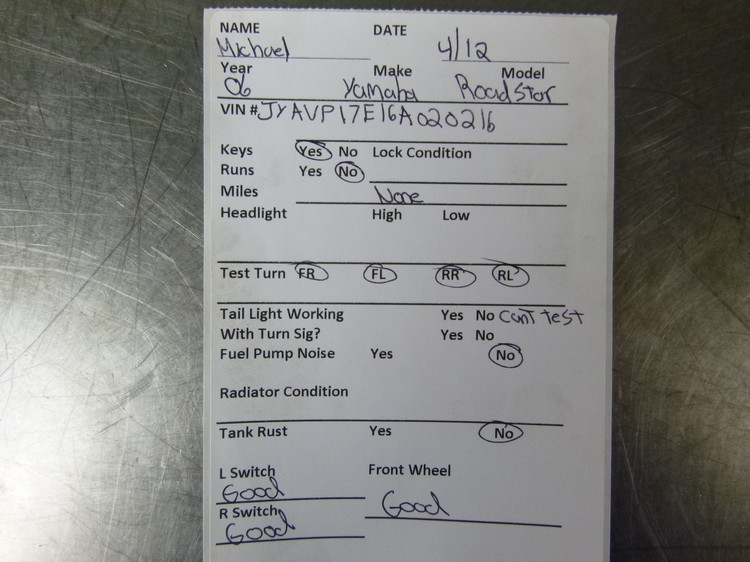 NAME DATE
Michael 4/12
Year Make Model
06 Yamaha Roadstar
VIN # JYAVP17E16A020216
Keys Yes No Lock Condition
Runs Yes No
Miles None
Headlight High Low
Test Turn FR FL RR RL
Tail Light Working Yes No Can't test
With Turn Sig? Yes No
Fuel Pump Noise Yes No
Radiator Condition
Tank Rust Yes No
L Switch Front Wheel
Good Good
R Switch
Good